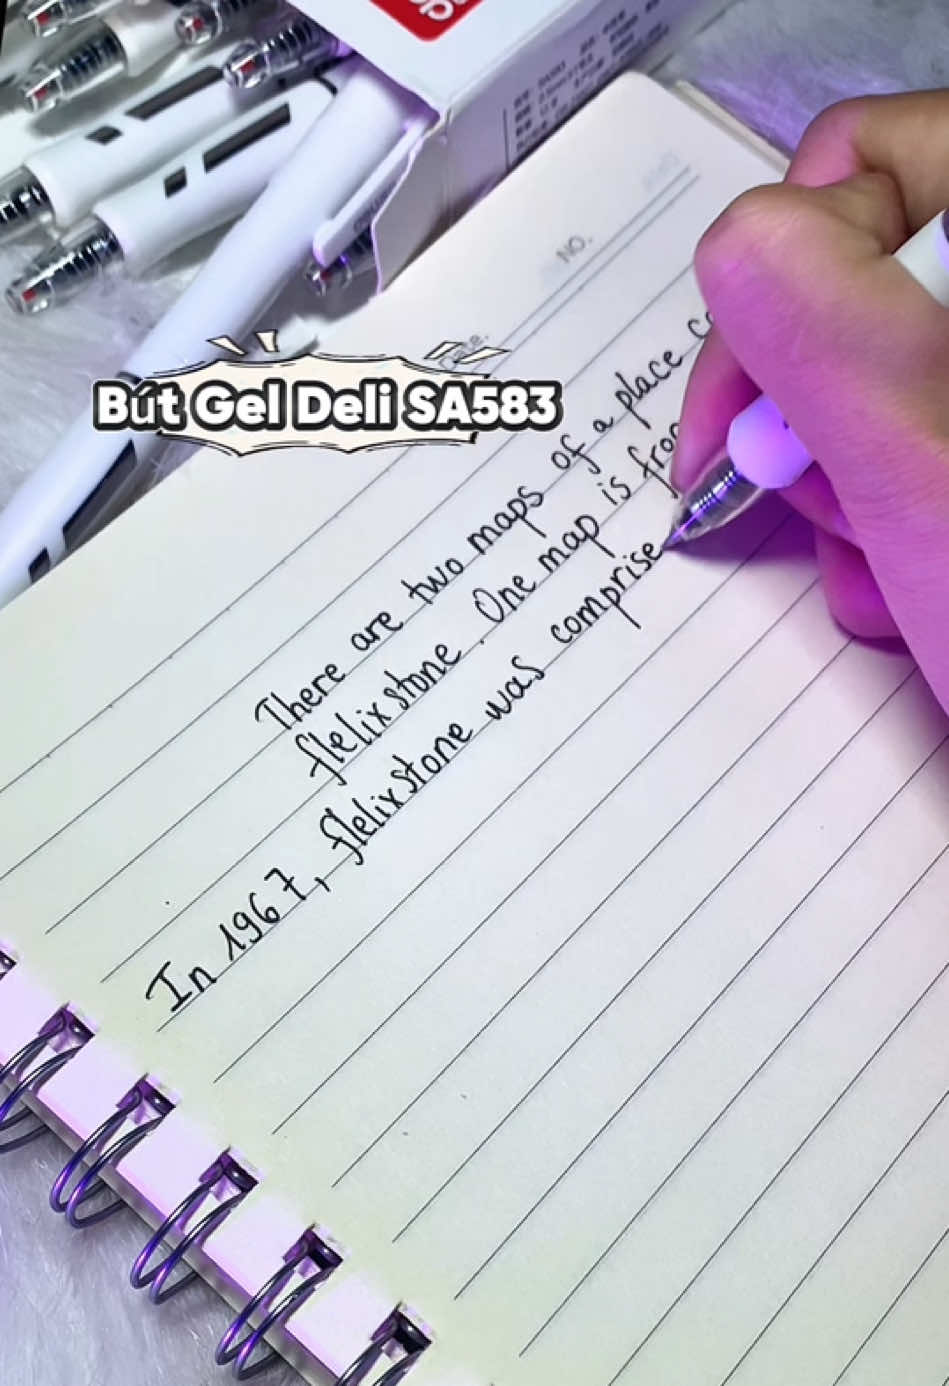 NO.
Date.
Bút Gel Deli SA583
There are two maps of a place
flelixstone. One map is
In 1967, flelixstone was comprise